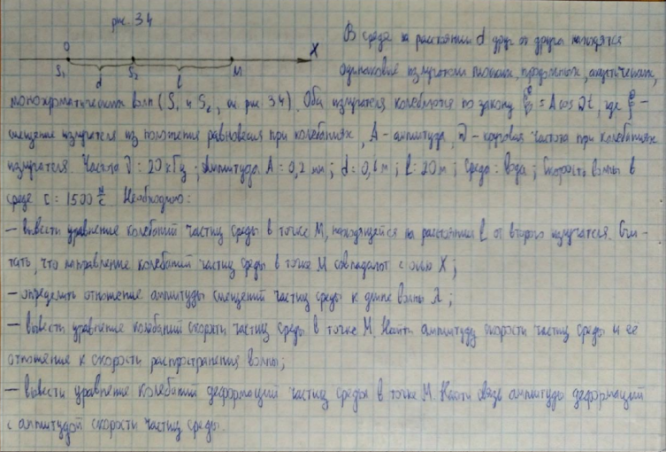 рис. 34
O
X
S₁
S₂
M
d
l
В среде на расстоянии d друг от друга находятся
одинаковые излучатели плоских, продольных, акустических,
монохроматических волн (S₁ и S₂, см рис 34). Оба излучателя колеблются по закону ξ = A cos Ωt, где ξ -
смещение излучателя из положения равновесия при колебаниях, A - амплитуда, Ω - круговая частота при колебаниях
излучателя. Частота ν = 20 кГц; Амплитуда A = 0,2 мм; d = 0,1 м; l = 20 м; среда: вода; Скорость волны в
среде c = 1500 м/с. Необходимо:
- вывести уравнение колебаний частиц среды в точке M, находящейся на расстоянии l от второго излучателя. Счи-
тать, что направление колебаний частиц среды в точке M совпадают с осью X;
- определить отношение амплитуды смещений частиц среды к длине волны λ;
- вывести уравнение колебаний скорости частиц среды в точке M. Найти амплитуду скорости частиц среды и её
отношение к скорости распространения волны;
- вывести уравнение колебаний деформаций частиц среды в точке M. Найти связь амплитуды деформаций
с амплитудой скорости частиц среды.